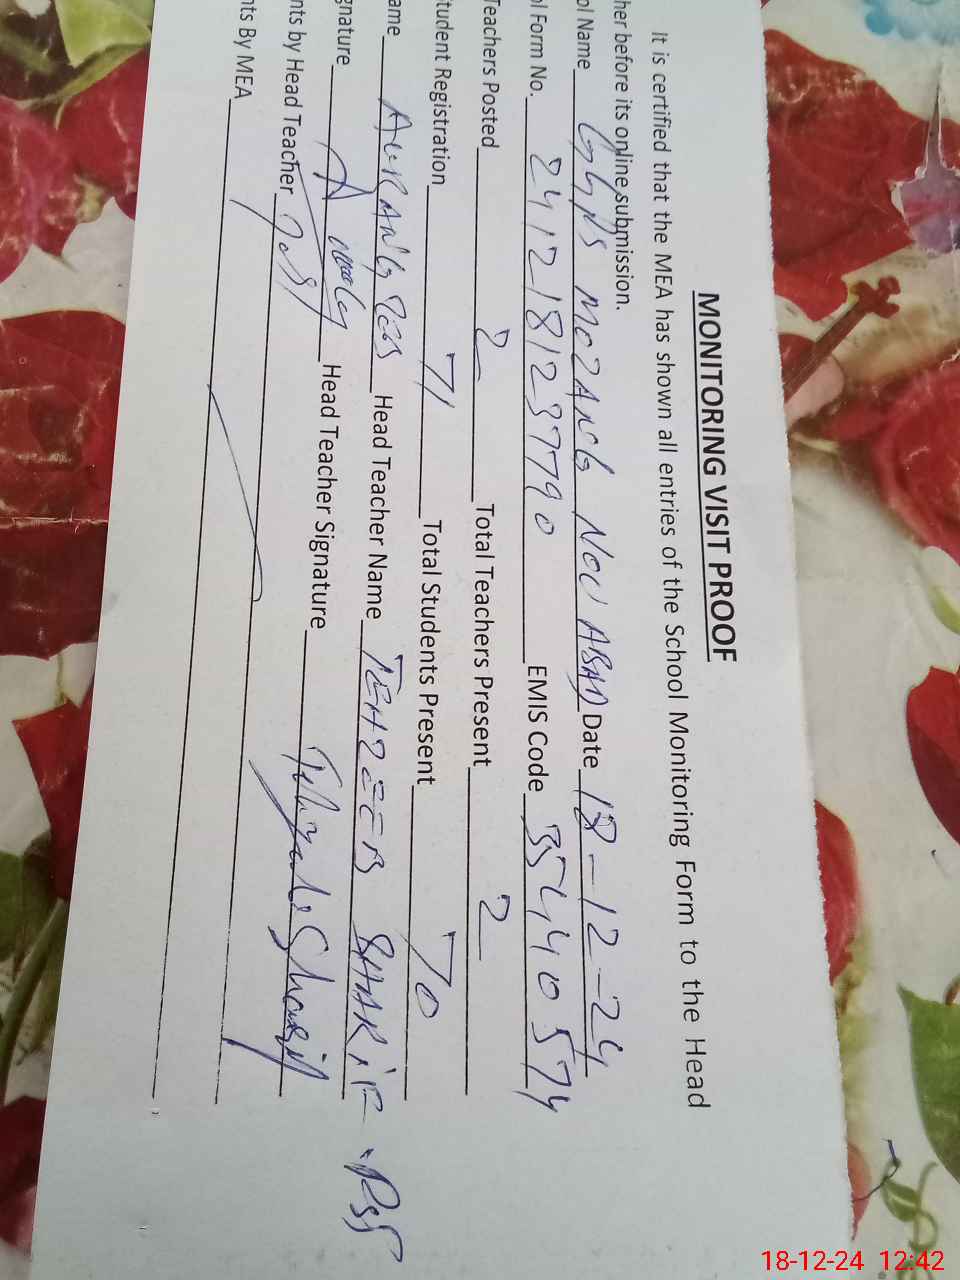 MONITORING VISIT PROOF
It is certified that the MEA has shown all entries of the School Monitoring Form to the Head
her before its online submission.
ol Name GGPS MOZANG NOU ABAD Date 18-12-24
ol Form No. 2412181237790 EMIS Code 35440574
Teachers Posted 2 Total Teachers Present 2
tudent Registration 71 Total Students Present 70
ame AURANGZEB Head Teacher Name TEHZEEB SHARIF .PST
gnature Head Teacher Signature
nts by Head Teacher
nts By MEA
18-12-24 12:42